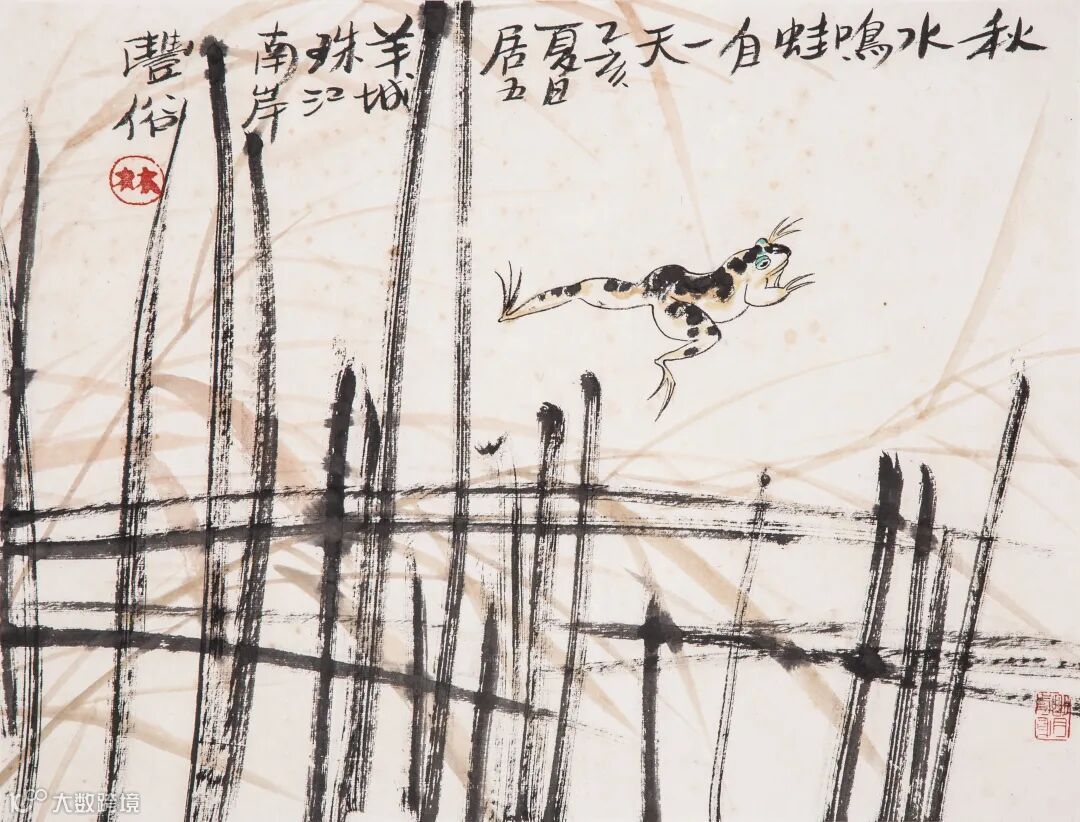 秋水鳴蛙自一天乙亥夏日居五羊城珠江南岸豐俗
林
大数跨境